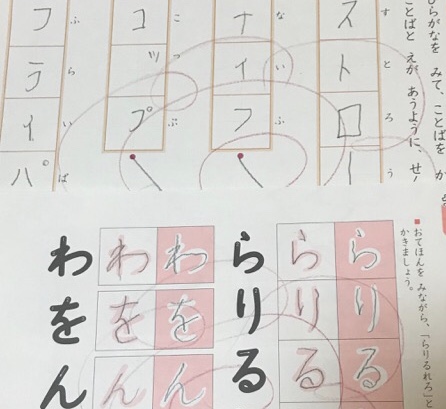 ひらがなを みて、ことばを か
ことばと えが あうように、せ
すとろう
ストロー
ないふ
ナイフ
こっぷ
コップ
ふらいぱ
フライパ
おてほんを みながら、「らりるれろ」と
かきましょう。
らりる
らりる
らりる
わをん
わをん
わをん